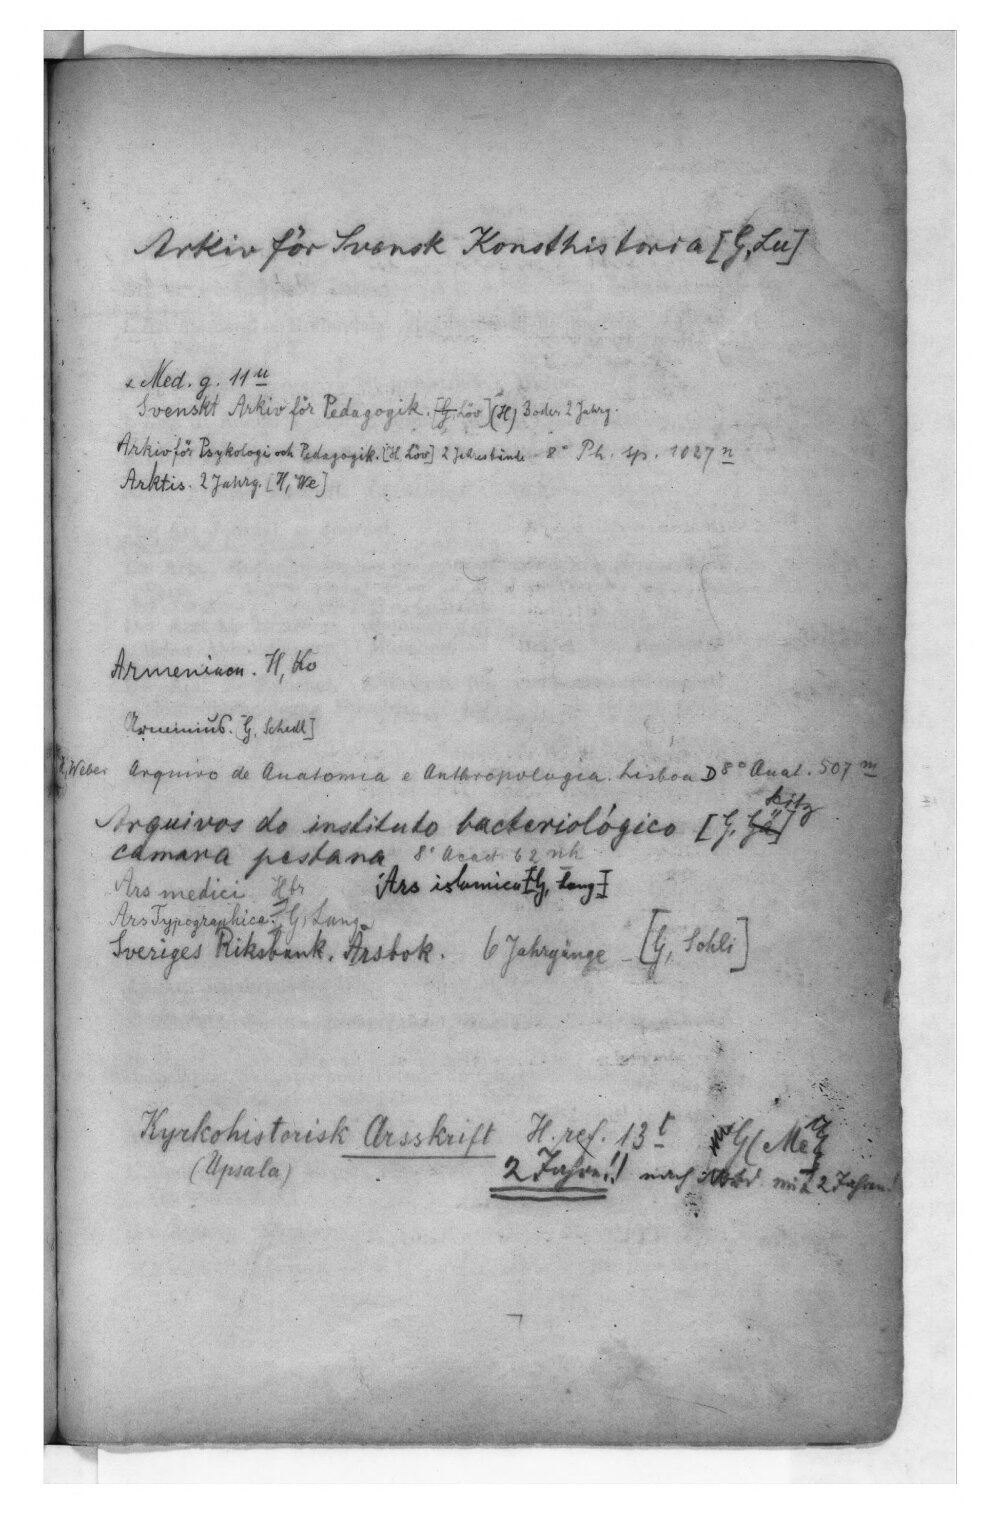 Arkiv för Svensk Konsthistoria [G, Lu]
Med. g. 11 u
Svenskt Arkiv för Pedagogik. [G, Löv] (H) 3 oder 2 Jahrg.
Arkiv för Psykologi och Pedagogik. [H Löv] 2 Jahresbände 8° Ph. sp. 1027 n
Arktis. 2 Jahrg. [H, We]
Armeniaca. H, Ko
Arminius. [G, Schedl]
H, Weber Arquivo de Anatomia e Anthropologia. Lisboa D 8° Anat. 507 m
Arquivos do instituto bacteriológico [G, Gä] kitz
camara pestana 8° Acad. 62 nh
Ars medici Hbr Ars islamica [G, Lang]
Ars Typographica. [G, Lang]
Sveriges Riksbank. Årsbok. 6 Jahrgänge – [G, Schli]
Kyrkohistorisk Arsskrift H. ref. 13 t G (Me
(Upsala) 2 Jahre!! nach mit 2 Jahren!